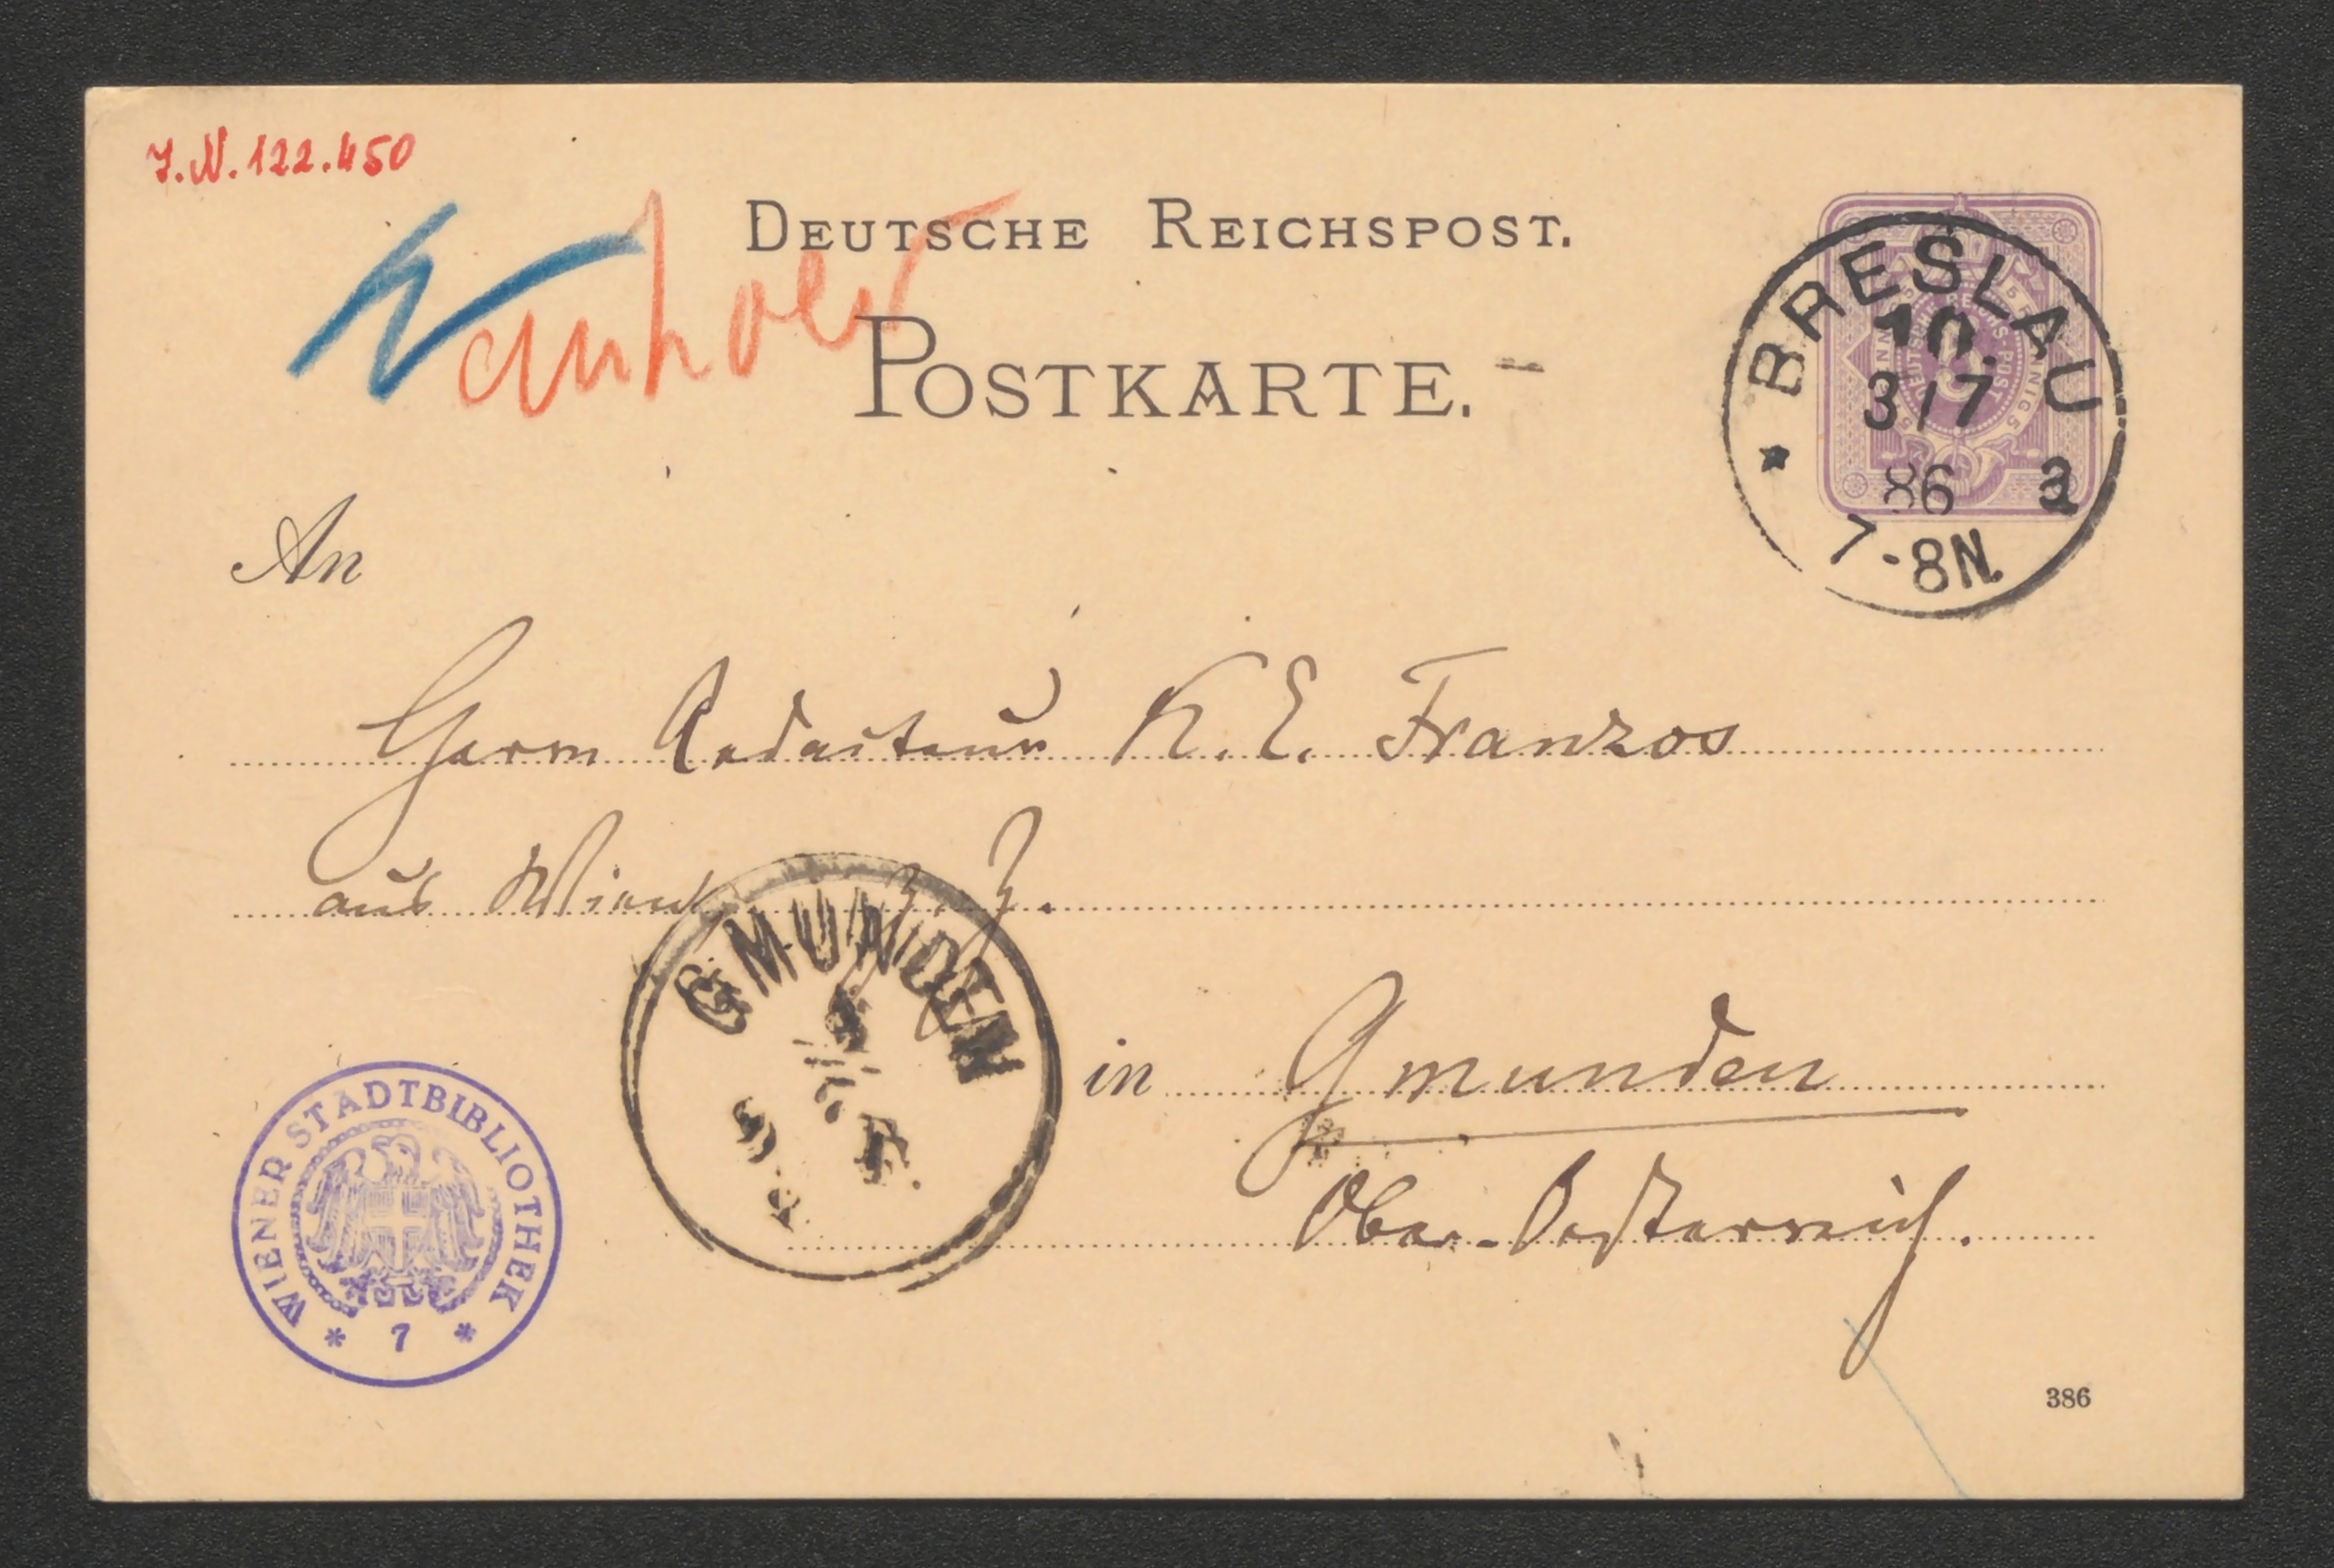 J.N. 122.450
DEUTSCHE REICHSPOST.
POSTKARTE.
BRESLAU
10.
3/7
86
2
7-8N.
An
Herrn Redacteur K. E. Franzos
aus Wien z. Z.
GMUNDEN
in Gmunden
Ober-Oesterreich.
WIENER STADTBIBLIOTHEK
* 7 *
386